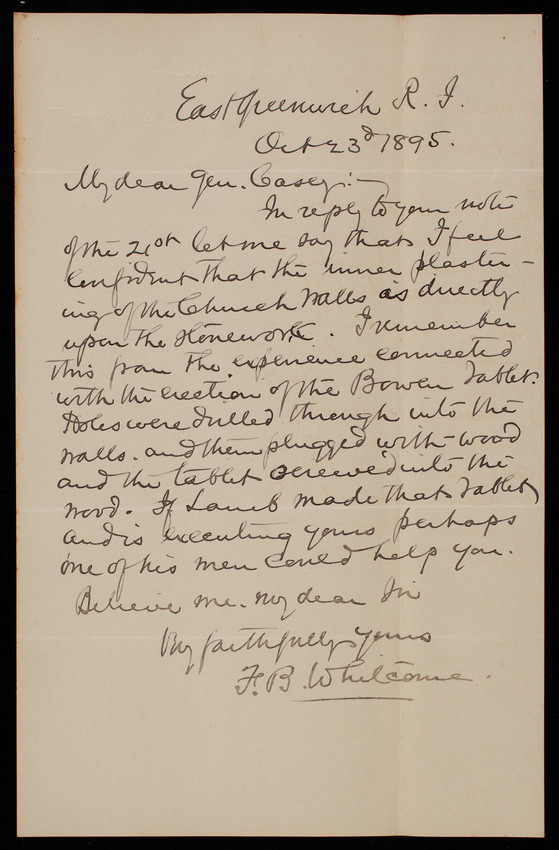 East Greenwich R. I.
Oct 23d 1895.
My dear Gen. Casey:—
In reply to your note
of the 21st let me say that I feel
confident that the inner plaster-
ing of the Church walls is directly
upon the stonework. I remember
this from the experience connected
with the erection of the Bowen tablet.
Holes were drilled through into the
walls. and then plugged with wood
and the tablet screwed into the
wood. If Lamb made that tablet
and is executing yours perhaps
one of his men could help you.
Believe me. my dear Sir
faithfully yours
F. B. Whitcome.